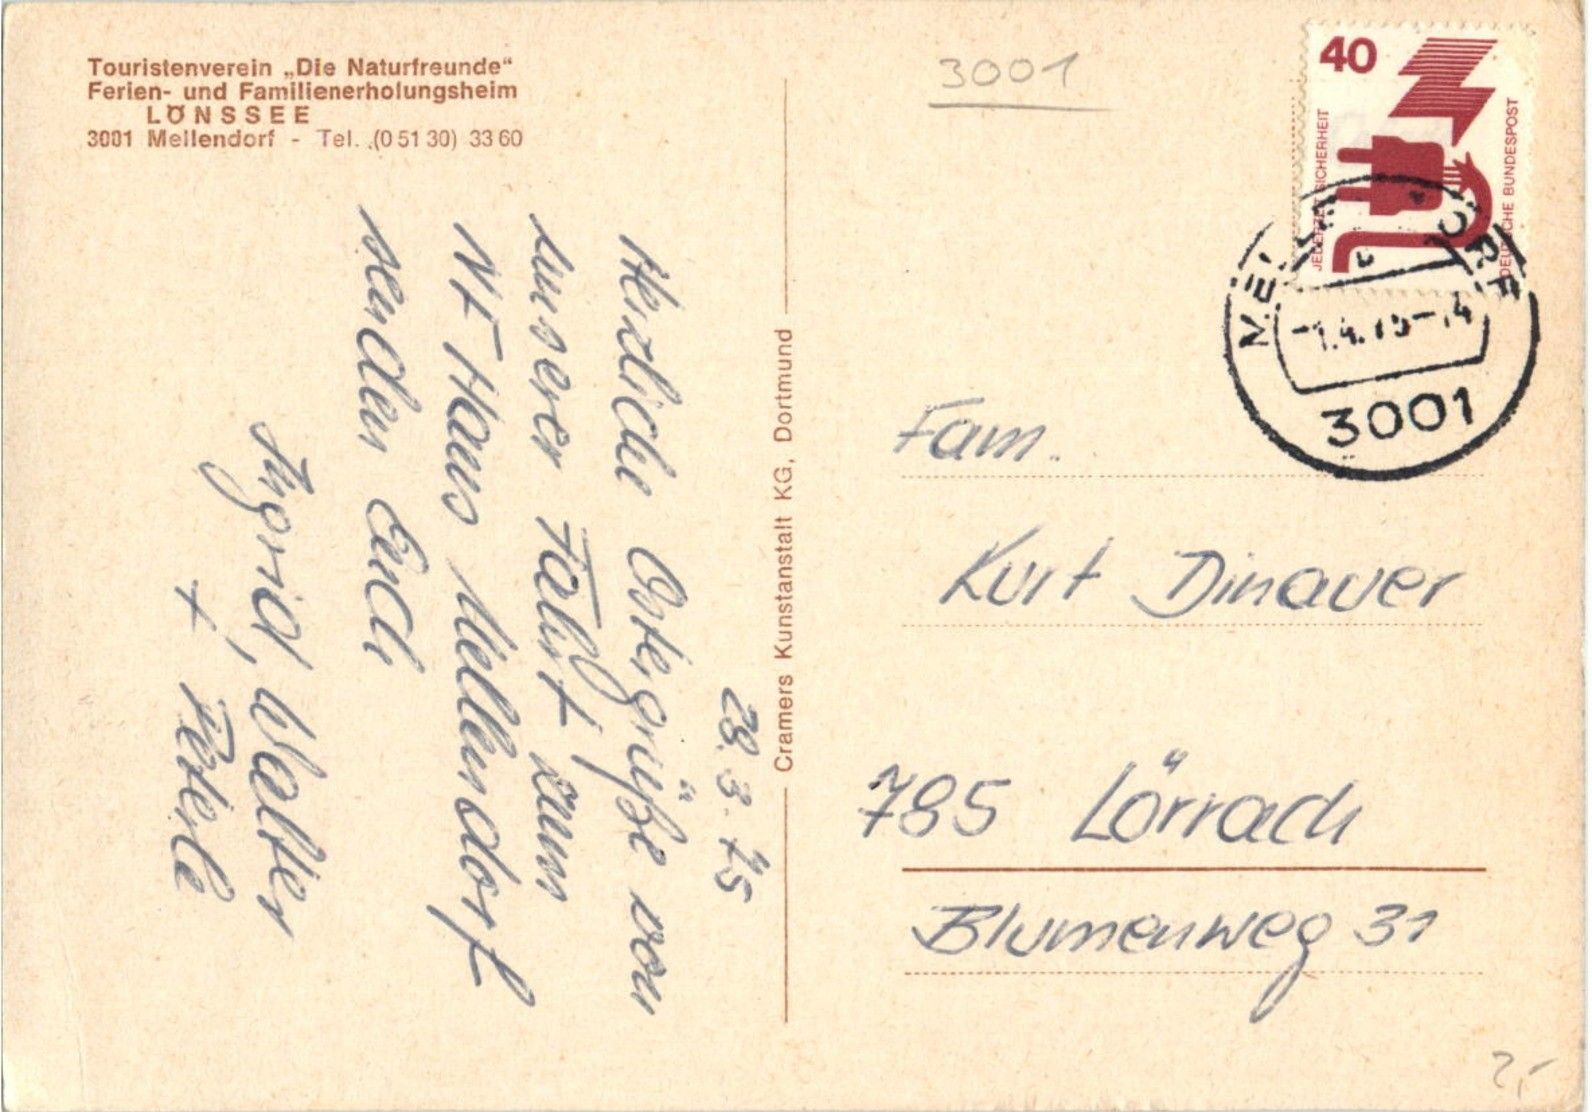 Touristenverein „Die Naturfreunde“
Ferien- und Familienerholungsheim
LÖNSSEE
3001 Mellendorf - Tel. (0 51 30) 33 60
28.3.75
Herzliche Ostergrüße von
unserer Fahrt zum
NF Haus Mellendorf
senden Euch
Ingrid, Walter
+ Peterle
Cramers Kunstanstalt KG, Dortmund
3001
40
JEDERZEIT SICHERHEIT
DEUTSCHE BUNDESPOST
MELLENDORF
-1.4.75-14
3001
Fam.
Kurt Dinauer
785 Lörrach
Blumenweg 31
2,-